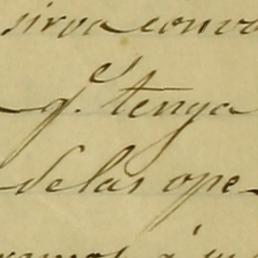 sirva conv
q.e tenga
delas ope-